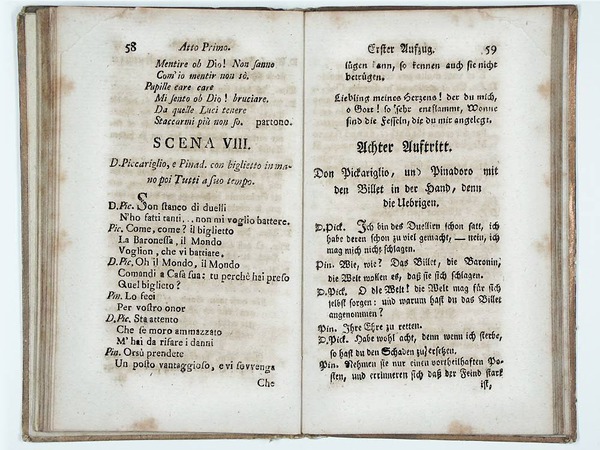 58 Atto Primo.
Mentire oh Dio! Non sanno
Com'io mentir non sò.
Pupille care care
Mi sento oh Dio! bruciare.
Da quelle Luci tenere
Staccarmi più non so. partono.
SCENA VIII.
D. Piccariglio, e Pinad. con biglietto in ma-
no poi Tutti a suo tempo.
D.Pic. Son stanco di duelli
N'ho fatti tanti... non mi voglio battere.
Pic. Come, come? il biglietto
La Baronessa, il Mondo
Voglion, che vi battiate.
D.Pic. Oh il Mondo, il Mondo
Comandi a Casa sua: tu perchè hai preso
Quel biglietto?
Pin. Lo feci
Per vostro onor
D.Pic. Sta attento
Che se moro ammazzato
M'hai da rifare i danni
Pin. Orsù prendete
Un posto vantaggioso, e vi sovvenga
Che
Erster Aufzug. 59
lügen kann, so kennen auch sie nicht
betrügen.
Liebling meines Herzens! der du mich,
o Gott! so sehr entflammt, Wonne
sind die Fesseln, die du mir angelegt.
Achter Auftritt.
Don Pickariglio, und Pinadoro mit
den Billet in der Hand, denn
die Uebrigen.
D.Pick. Ich bin des Duellien schon satt, ich
habe deren schon zu viel gemacht, — nein, ich
mag mich nicht schlagen.
Pin. Wie, wie? Das Billet, die Baronin,
die Welt wollen es, daß sie sich schlagen.
D.Pick. O die Welt! die Welt mag für sich
selbst sorgen: und warum hast du das Billet
angenommen?
Pin. Ihre Ehre zu retten.
D.Pick. Habe wohl acht, denn wenn ich sterbe,
so hast du den Schaden zu ersetzen.
Pin. Nehmen sie nur einen vortheilhaften Po-
sten, und erinneren sich daß der Feind stark
ist,